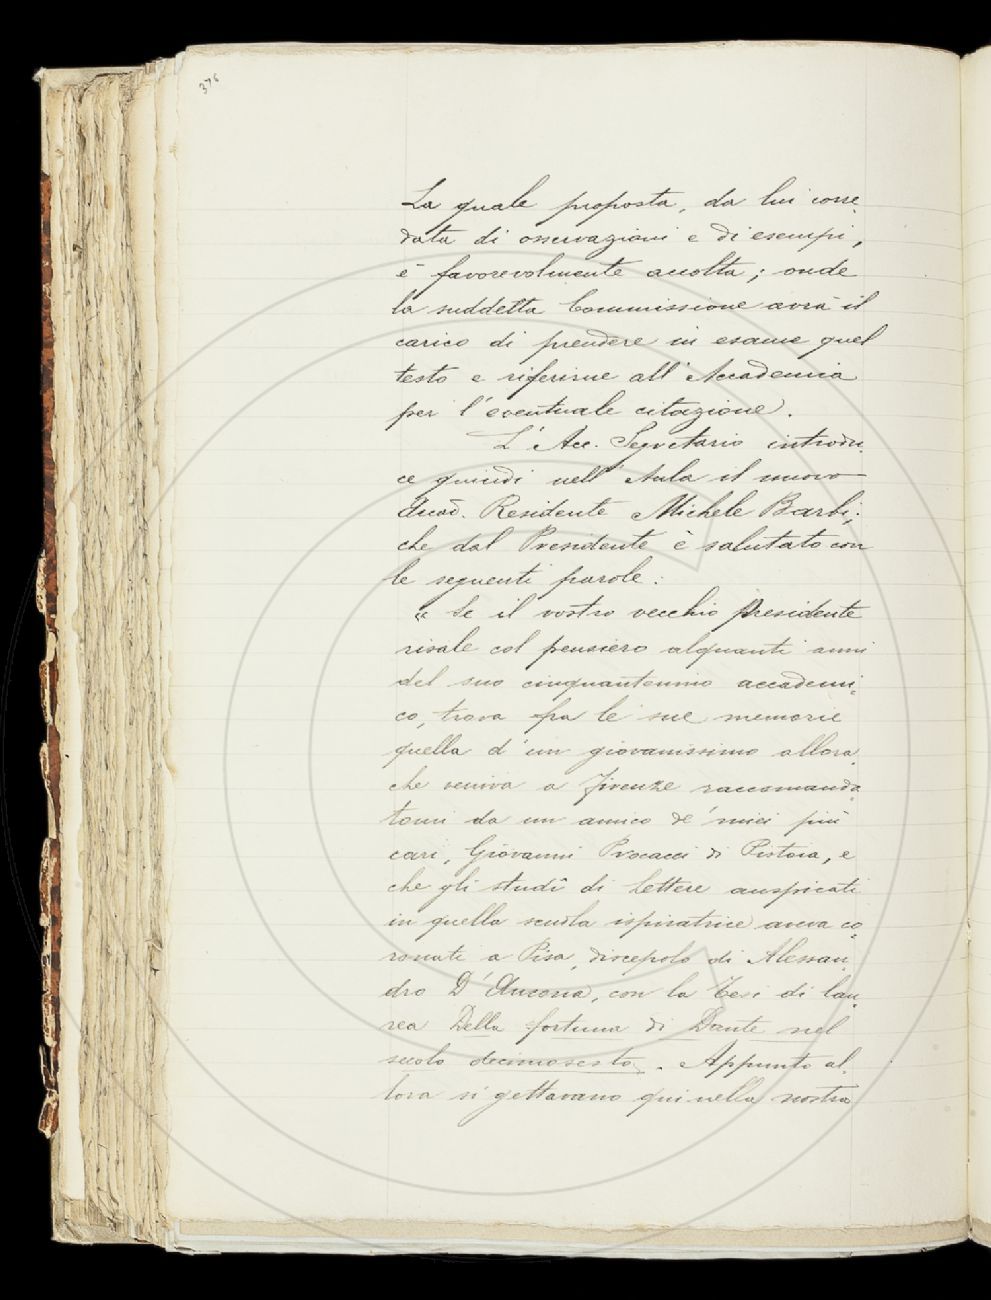 376
La quale proposta, da lui corre-
data di osservazioni e di esempi,
è favorevolmente accolta; onde
la suddetta Commissione avrà il
carico di prendere in esame quel
testo e riferirne all'Accademia
per l'eventuale citazione.
L'Acc. Segretario introdu-
ce quindi nell'Aula il nuovo
Accad. Residente Michele Barbi;
che dal Presidente è salutato con
le seguenti parole:
« Se il vostro vecchio Presidente
risale col pensiero alquanti anni
del suo cinquantennio accademi-
co, trova fra le sue memorie
quella d'un giovanissimo allora,
che veniva a Firenze raccomanda-
tomi da un amico de' miei più
cari, Giovanni Procacci di Pistoia, e
che gli studî di lettere auspicati
in quella scuola ispiratrice aveva co-
ronati a Pisa, discepolo di Alessan-
dro D'Ancona, con la Tesi di lau-
rea Della fortuna di Dante nel
secolo decimosesto. Appunto al-
lora si gettavano qui nella nostra